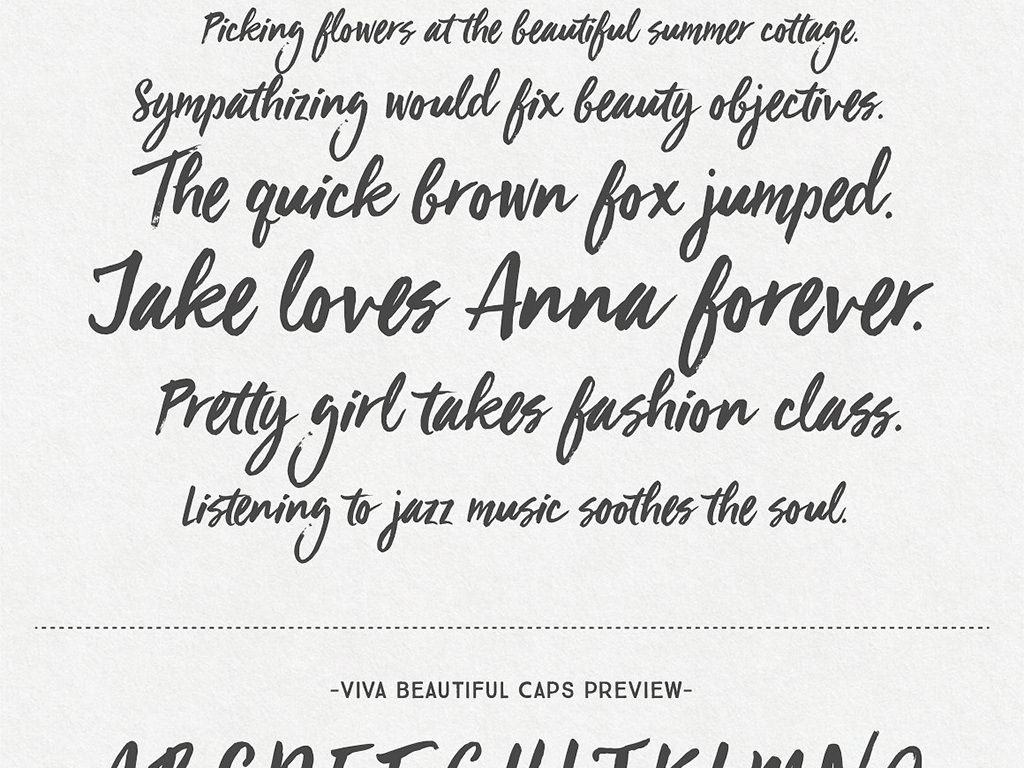 Picking flowers at the beautiful summer cottage.
Sympathizing would fix beauty objectives.
The quick brown fox jumped.
Jake loves Anna forever.
Pretty girl takes fashion class.
Listening to jazz music soothes the soul.
-VIVA BEAUTIFUL CAPS PREVIEW-
ABCDEFGHIJKLMNO